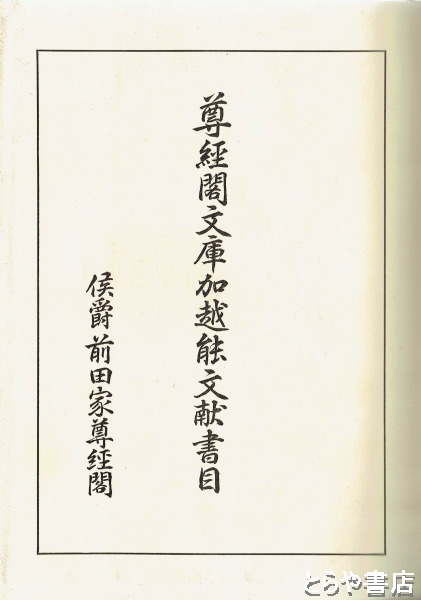 尊經閣文庫加越能文献書目
侯爵前田家尊經閣
とらや書店